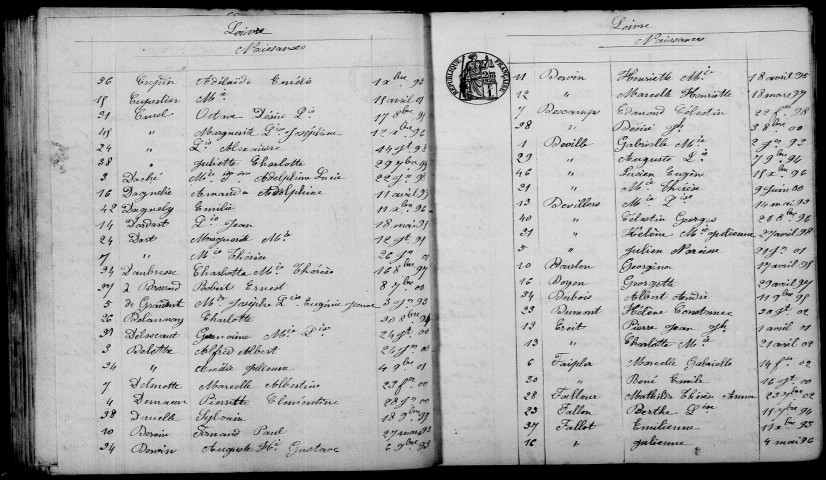 Loivre
Naissances
26 Crépin Adélaïde Émérée 1 xbre 93
15 Cupestien Mie 11 avril 01
21 Curel Octave Désiré Lis 17 8bre 91
45 " Marguerite Lise Joséphine 12 xbre 96
24 " Lis Alexandre 14 gt 93
28 " Juliette Charlotte 29 7bre 95
3 Daché Mie Adelphine Lucie 22 jer 95
16 Dagnelie Armand Adelphine 11 avril 95
42 Dagnely Émilie 11 xbre 96
14 Dardart Lis Jean 18 mai 95
24 Dart Marguerite Mie 12 gt 91
7 " Mie Thérèse 26 jer 01
34 Daubresse Charlotte Mie Thérèse 16 8bre 97
27 Robert Ernest 8 7bre 00
5 Mie Josèphe Lise Eugénie Jeanne 3 jer 93
26 Delaunay Charlotte 20 8bre 94
33 Germaine Mie Lise 24 gt 00
3 Delette Alfred Albert 24 jer 00
24 " Amélie Julienne 4 9bre 01
7 Delmotte Marcelle Albertine 23 fer 00
4 Demaux Pierrette Clémentine 28 jer 00
38 Druelle Sylvain 18 9bre 97
10 Dervin Fernand Paul 27 mars 93
34 Dervin Auguste He Gustave 6 9bre 93
Loivre
Naissances
RÉPUBLIQUE FRANÇAISE
11 Dervin Henriette Mie 18 avril 95
12 " Marcelle Henriette 18 mars 97
7 Descamps Edmond Célestin 22 fer 98
38 " Désiré Jh 3 8bre 00
1 Deville Gabrielle Mie 2 jer 93
29 " Auguste Lis 7 9bre 94
46 " Lucien Eugène 18 xbre 96
21 " Mie Thérèse 9 juin 00
13 Devillers Mie Lise 14 mai 93
40 " Célestin Georges 26 8bre 96
21 " Hélène Mie Julienne 27 avril 98
5 " Julien Narcisse 21 jer 01
10 Georgina 17 avril 95
16 Doyen Georgette 29 avril 97
34 Dubois Albert André 11 9bre 95
23 Dumont Hélène Constance 30 gt 02
12 Pierre Jean Jh 1 avril 01
13 " Charlotte Mie 21 avril 02
6 Marcelle Gabrielle 14 fer 02
30 " René Émile 16 gt 00
28 Failleur Mathilde Thérèse Anna 23 7bre 02
23 Fallon Berthe Lise 11 7bre 94
37 Fallet Émilienne 11 xbre 95
16 " Julienne 4 mai 96